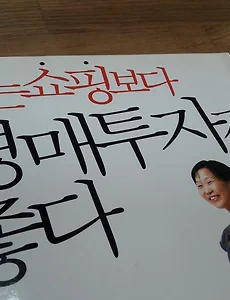 는 쇼핑보다
경매투자가
좋다